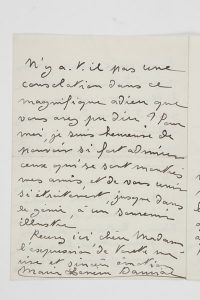 N'y a-t-il pas une
consolation dans ce
magnifique adieu que
vous avez pu dire ? Pour
moi, je suis heureuse de
pouvoir si fort admirer
ceux qui se sont montrés
mes amis et de vous unir
si étroitement, jusque dans
le génie, à un souvenir
illustre
Recevez ici chère Madame
l'expression de toute ma
vive et sincère émotion
Marie